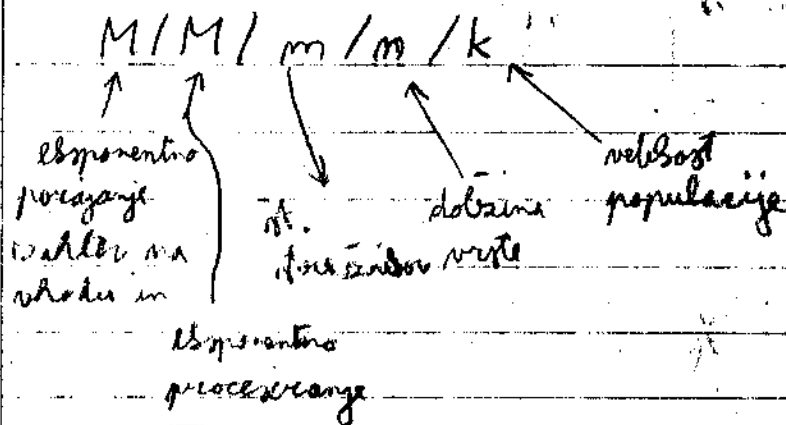 M/M/m/n/k
eksponentno
porajanje
zahtev na
vhodu in
eksponentno
procesiranje
št.
strežnikov
dolžina
vrste
velikost
populacije